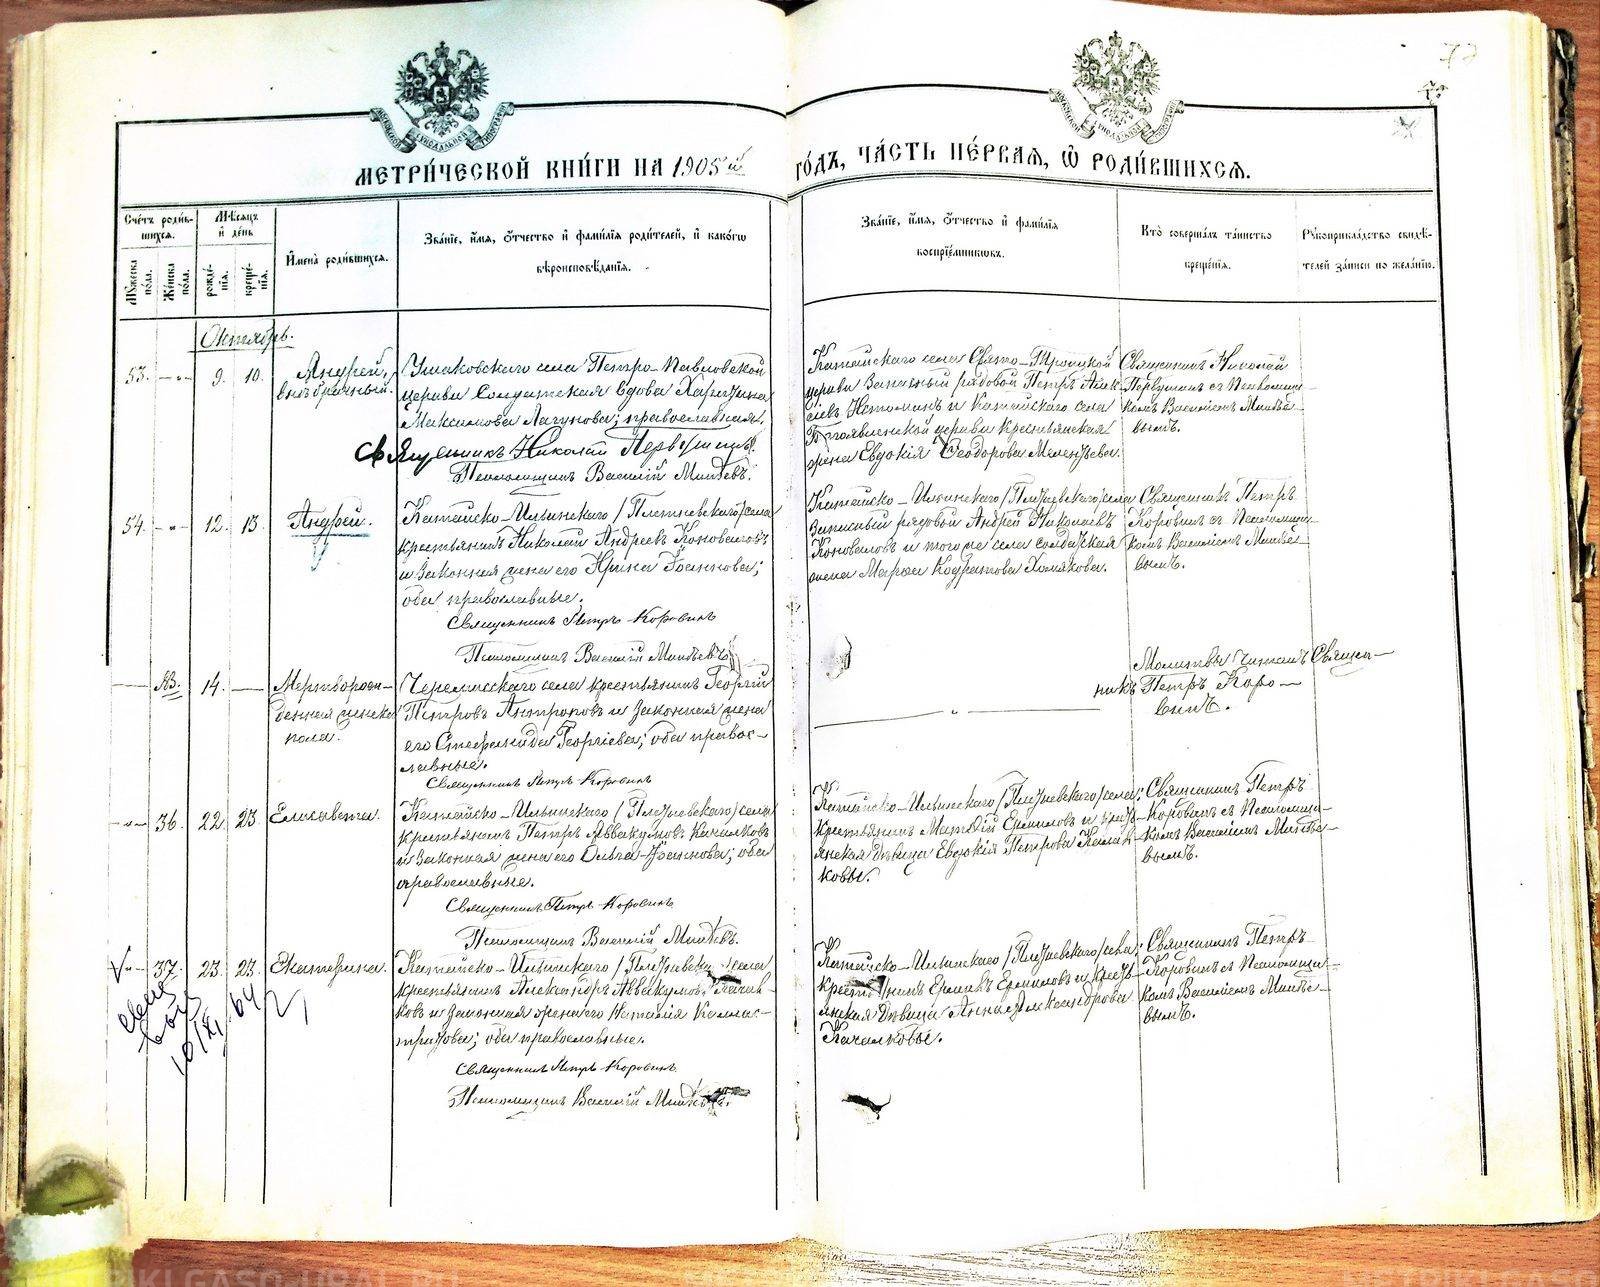 МЕТРИ́ЧЕСКОЙ КНИ́ГИ НА 1905й ГО́ДЪ, ЧА́СТЬ ПЕ́РВАЯ, Ѽ РОДИ́ВШИХСЯ.
Сче́тъ роди́в-
шихся.
Мѣ́сяцъ
и де́нь
Му́жеска по́ла.
Же́нска по́ла.
рожде́-
нїя.
креще́-
нїя.
Имена̀ роди́вшихся.
Зва́нїе, и́мя, о́тчество и фами́лїя роди́телей, и како́гѡ
вѣроисповѣ́данїя.
Зва́нїе, и́мя, о́тчество и фами́лїя
воспрїе́мниковъ.
Кто̀ соверша́лъ та́инство
креще́нїя.
Рꙋкоприкла́дство свидѣ́-
телей за́писи по жела́нїю.
Октябрь.
53. — „ — 9. 10. Андрей,
внѣбрачный.
Ушаковскаго села Петро-Павловской
церкви Солдатская вдова Харитина
Максимова Лагунова; православная.
Священникъ Николай Первушинъ.
Псаломщикъ Василій Михѣевъ.
Катайскаго села Свято-Троицкой
церкви Запасный рядовой Петръ
и Катайскаго села
Богоявленской церкви крестьянская
жена Евдокія Ѳеодорова
Священникъ Николай
Первушинъ съ Псаломщи-
комъ Василіемъ Михѣе-
вымъ.
54. — „ — 12. 13. Андрей.
Катайско-Ильинскаго /Плетневскаго/ села
крестьянинъ Николай Андреевъ Коноваловъ
и законная жена его Ирина Іоаннова;
оба православные.
Священникъ Петръ Коровинъ
Псаломщикъ Василій Михѣевъ
Катайско-Ильинскаго села
Запасный рядовой Андрей Николаевъ
Коноваловъ и того же села солдатская
жена Марѳа Кодратова Хомякова.
Священникъ Петръ
Коровинъ съ Псаломщи-
комъ Василіемъ Михѣе-
вымъ.
14. — Мертворож-
денная женска
пола.
Черемисскаго села крестьянинъ Георгій
Петровъ Антроповъ и законная жена
его Стефанида Георгіева; оба правос-
лавные.
Священникъ Петръ Коровинъ
Молитвы читалъ Священ-
никъ Петръ Коро-
винъ.
— „ — 36. 22. 23. Елисавета.
Катайско-Ильинскаго села
крестьянинъ Петръ Аввакумовъ Качалковъ
и законная жена его Ольга Іоаннова; оба
православные.
Священникъ Петръ Коровинъ
Псаломщикъ Василій Михѣевъ.
Катайско-Ильинскаго села:
крестьянинъ Матѳій Ермиловъ и кресть-
янская дѣвица Евдокія Петрова Качал-
ковы.
Священникъ Петръ
Коровинъ съ Псаломщи-
комъ Василіемъ Михѣе-
вымъ.
— „ — 37. 23. 23. Екатерина.
Катайско-Ильинскаго села
крестьянинъ Александръ Аввакумовъ Качал-
ковъ и законная жена его Наталія Каллис-
тратова; оба православные.
Священникъ Петръ Коровинъ
Псаломщикъ Василій Михѣевъ.
Катайско-Ильинскаго села:
крестьянинъ Ермилъ Ермиловъ и кресть-
янская дѣвица Анна Александрова
Качалковы.
Священникъ Петръ
Коровинъ съ Псаломщи-
комъ Василіемъ Михѣе-
вымъ.
10/XI 64